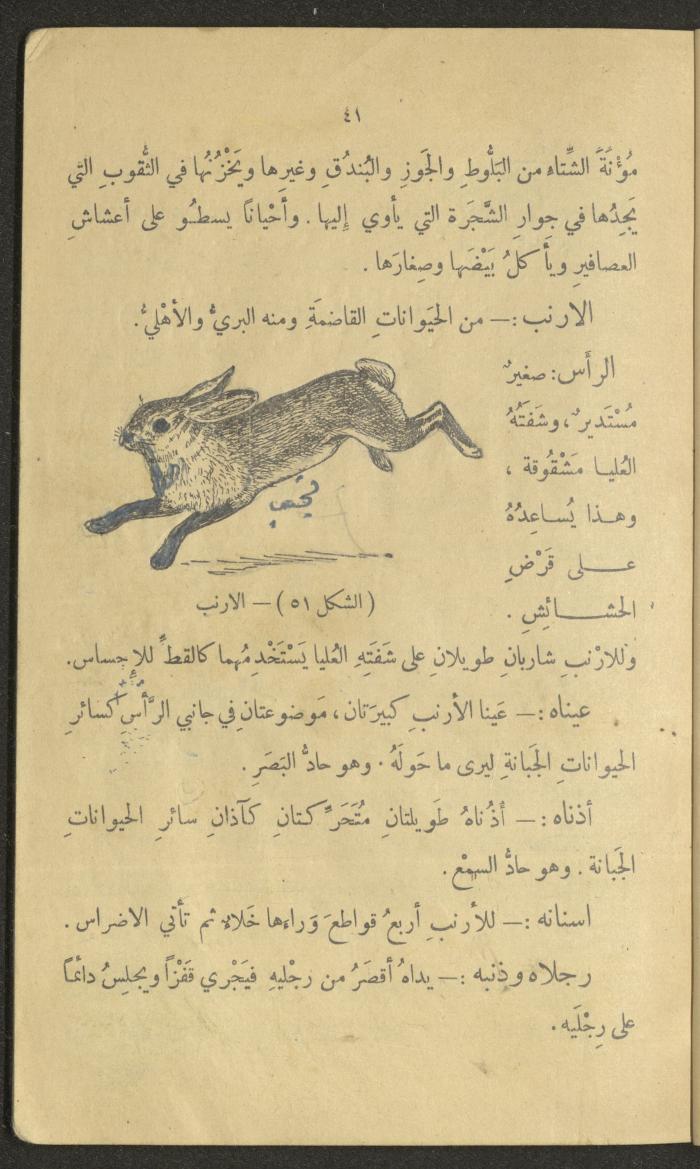 ٤١
مُؤْنَةَ الشِّتاءِ من البَلُّوطِ والجَوزِ والبُندُقِ وغيرِها ويَخْزُنُها في الثُّقوبِ التي
يَجِدُها في جوارِ الشَّجَرة التي يأوي إليها . وأحْياناً يسطُو على أعشاشِ
العصافيرِ ويأكلُ بَيْضَها وصِغارَها .
الارنب :— من الحيَواناتِ القاضمَةِ ومنه البريُّ والأهْليُّ .
الرأَس : صغيرٌ
مُسْتَديرٌ ، وشَفَتُهُ
العُليا مَشْقُوقة ،
وهذا يُساعِدُهُ
على قَرْضِ
الحشائِشِ .
(الشكل ٥١) — الارنب
وللارْنبِ شاربانِ طويلانِ على شَفَتِهِ العُليا يَسْتَخْدِمُهما كالقطِّ للإحساس .
عيناه :— عَينا الأرنبِ كبيرَتان ، مَوضوعتانِ في جانبي الرَّأسِ كسائرِ
الحيواناتِ الجَبانةِ ليرى ما حَولَهُ . وهو حادُّ البَصَرِ .
أذناه :— أذُناهُ طَويلتانِ مُتَحَرِّكتانِ كآذانِ سائرِ الحيواناتِ
الجَبانة . وهو حادُّ السمْع .
اسنانه :— للأرنبِ أربعُ قواطعَ وَراءها خَلاء ثم تأتي الاضراس .
رجلاه وذنبه :— يداهُ أقصَرُ من رجْليهِ فيَجْري قَفْزاً ويجلِسُ دائماً
على رِجْلَيه .